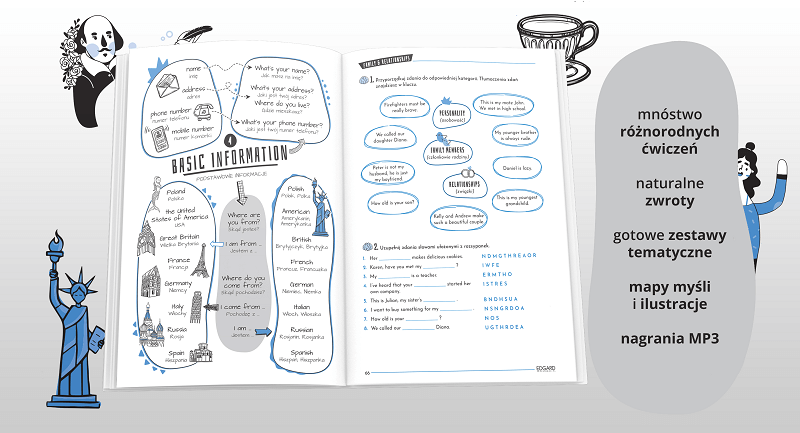 name
imię
What's your name?
Jak masz na imię?
address
adres
What's your address?
Jaki jest twój adres?
Where do you live?
Gdzie mieszkasz?
phone number
numer telefonu
mobile number
numer komórki
What's your phone number?
Jaki jest twój numer telefonu?
4
BASIC INFORMATION
PODSTAWOWE INFORMACJE
Poland
Polska
the United
States of America
USA
Great Britain
Wielka Brytania
France
Francja
Germany
Niemcy
Italy
Włochy
Russia
Rosja
Spain
Hiszpania
Where are
you from?
Skąd jesteś?
I am from ...
Jestem z ...
Where do you
come from?
Skąd pochodzisz?
I come from ...
Pochodzę z ...
I am ...
Jestem ...
Polish
Polak, Polka
American
Amerykanin,
Amerykanka
British
Brytyjczyk, Brytyjka
French
Francuz, Francuzka
German
Niemiec, Niemka
Italian
Włoch, Włoszka
Russian
Rosjanin, Rosjanka
Spanish
Hiszpan, Hiszpanka
FAMILY & RELATIONSHIPS
1. Przyporządkuj zdania do odpowiedniej kategorii. Tłumaczenia zdań
znajdziesz w kluczu.
Firefighters must be
really brave.
PERSONALITY
(osobowość)
This is my mate John.
We met in high school.
We called our
daughter Diana.
My younger brother
is always rude.
FAMILY MEMBERS
(członkowie rodziny)
Peter is not my
husband, he is just
my boyfriend.
Daniel is lazy.
RELATIONSHIPS
(związki)
How old is your son?
This is my youngest
grandchild.
Kelly and Andrew make
such a beautiful couple.
2. Uzupełnij zdania słowami ułożonymi z rozsypanek.
1. Her ________ makes delicious cookies. NDMGTHREAOR
2. Karen, have you met my ________ ? IWFE
3. My ________ is a teacher. ERMTHO
4. I've heard that your ________ started her
own company. ISTRES
5. This is Julian, my sister's ________. BNDHSUA
6. I want to buy something for my ________. NSNGRDOA
7. How old is your ________ ? NOS
8. We called our ________ Diana. UGTHROEA
66
EDGARD
mnóstwo
różnorodnych
ćwiczeń
naturalne
zwroty
gotowe zestawy
tematyczne
mapy myśli
i ilustracje
nagrania MP3